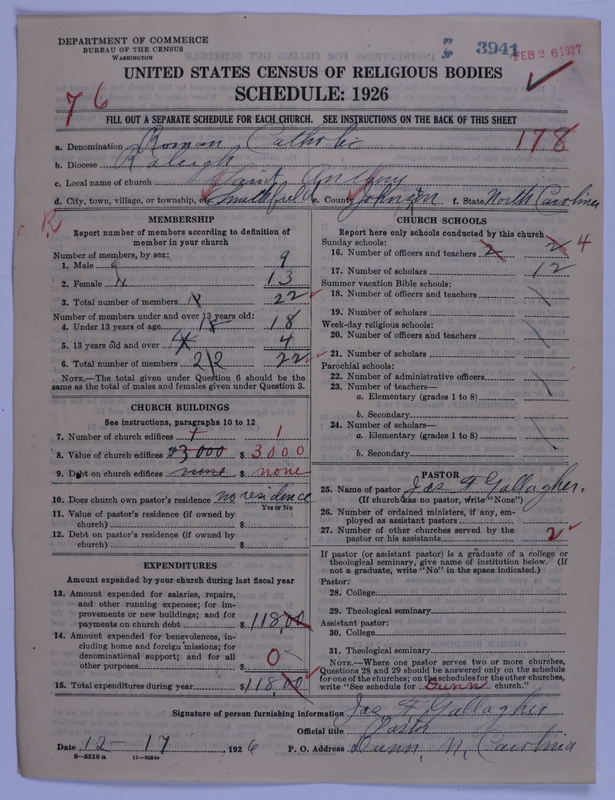 DEPARTMENT OF COMMERCE
BUREAU OF THE CENSUS
WASHINGTON
3941
FEB 26 1927
UNITED STATES CENSUS OF RELIGIOUS BODIES
SCHEDULE: 1926
76
FILL OUT A SEPARATE SCHEDULE FOR EACH CHURCH. SEE INSTRUCTIONS ON THE BACK OF THIS SHEET
178
a. Denomination Roman Catholic
b. Diocese Raleigh
c. Local name of church Saint Anthony
d. City, town, village, or township, or Smithfield e. County Johnson f. State North Carolina
MEMBERSHIP
Report number of members according to definition of
member in your church
Number of members, by sex:
1. Male 9 9
2. Female 13
3. Total number of members 22
Number of members under and over 13 years old:
4. Under 13 years of age 18 18
5. 13 years old and over 4 4
6. Total number of members 22 22
NOTE.—The total given under Question 6 should be the
same as the total of males and females given under Question 3.
CHURCH BUILDINGS
See instructions, paragraphs 10 to 12
7. Number of church edifices 1 1
8. Value of church edifices 3000 $ 3000
9. Debt on church edifices none $ none
10. Does church own pastor's residence no residence
Yes or No
11. Value of pastor's residence (if owned by
church) $
12. Debt on pastor's residence (if owned by
church) $
EXPENDITURES
Amount expended by your church during last fiscal year
13. Amount expended for salaries, repairs,
and other running expenses; for im-
provements or new buildings; and for
payments on church debt $ 118.00
14. Amount expended for benevolences, in-
cluding home and foreign missions; for
denominational support; and for all
other purposes $ 0
15. Total expenditures during year $ 118.00
CHURCH SCHOOLS
Report here only schools conducted by this church
Sunday schools:
16. Number of officers and teachers 2 2 4
17. Number of scholars 12
Summer vacation Bible schools:
18. Number of officers and teachers
19. Number of scholars
Week-day religious schools:
20. Number of officers and teachers
21. Number of scholars
Parochial schools:
22. Number of administrative officers
23. Number of teachers—
a. Elementary (grades 1 to 8)
b. Secondary
24. Number of scholars—
a. Elementary (grades 1 to 8)
b. Secondary
PASTOR
25. Name of pastor Jas F Gallagher.
(If church has no pastor, write "None")
26. Number of ordained ministers, if any, em-
ployed as assistant pastors
27. Number of other churches served by the
pastor or his assistants 2
If pastor (or assistant pastor) is a graduate of a college or
theological seminary, give name of institution below. (If
not a graduate, write "No" in the space indicated.)
Pastor:
28. College
29. Theological seminary
Assistant pastor:
30. College
31. Theological seminary
NOTE.—Where one pastor serves two or more churches,
Questions 28 and 29 should be answered only on the schedule
for one of the churches; on the schedules for the other churches,
write "See schedule for Dunn church."
Signature of person furnishing information Jas F Gallagher
Official title Pastor
Date 12 - 17, 1926 P. O. Address Dunn, N, Carolina
8—5518 a